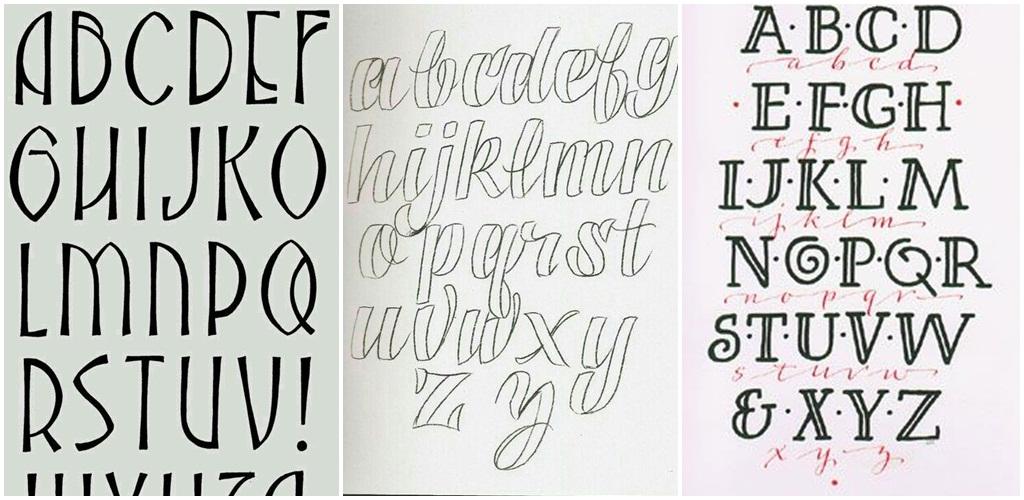 ABCDEF
GHIJKO
LMNPQ
RSTUV!
abcdefg
hijklmn
opqrst
uvwxy
z y
A·B·C·D
a b c d
·E·F·G·H·
e f g h
I·J·K·L·M
i j k l m
N·O·P·Q·R
n o p q r
S·T·U·V·W
s t u v w
&·X·Y·Z
x y z